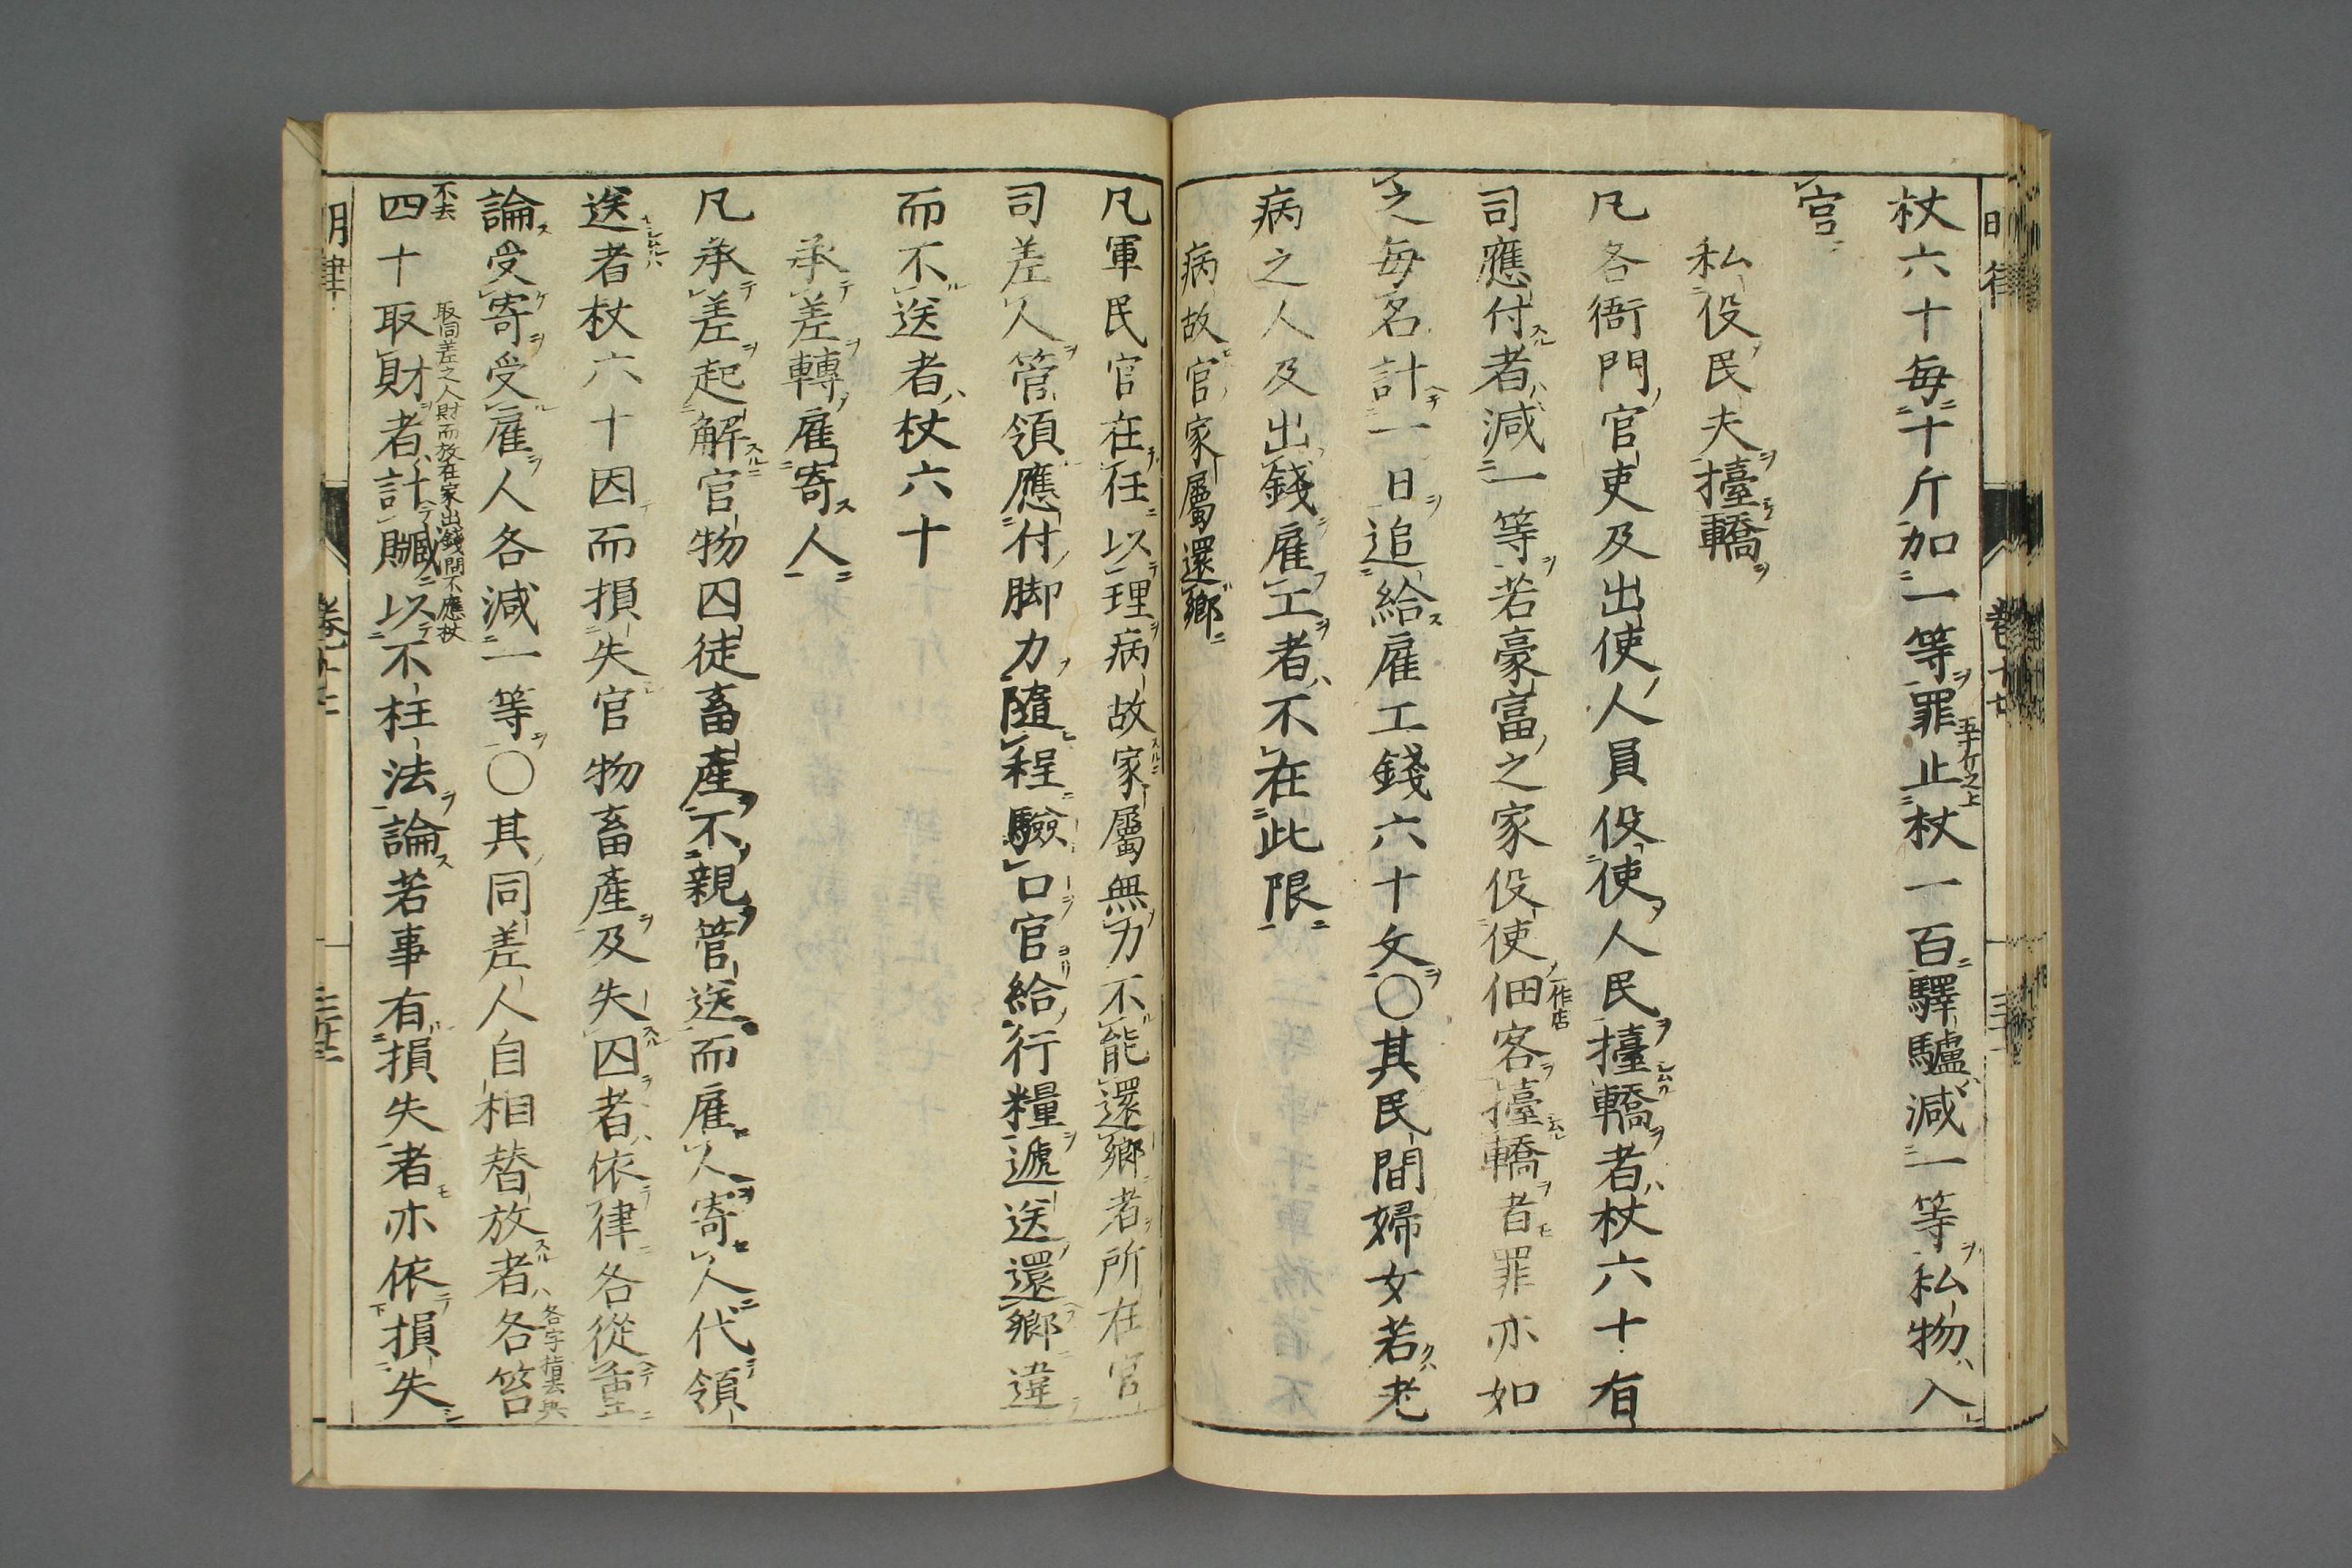 杖六十每十斤加一等罪止杖一百驛驢減一等私物入
五十斤之上
官
私役民夫擡轎
凡各衙門官吏及出使人員役使人民擡轎者杖六十有
司應付者減一等若豪富之家役使佃客擡轎者罪亦如
一作店
之每名計一日追給雇工錢六十文〇其民間婦女若老
病之人及出錢雇工者不在此限
病故官家屬還鄉
凡軍民官在任以理病故家屬無力不能還鄉者所在官
司差人管領應付脚力隨程驗口官給行糧遞送還鄉違
而不送者杖六十
承差轉雇寄人
凡承差起解官物囚徒畜產不親管送而雇人寄人代領
送者杖六十因而損失官物畜產及失囚者依律各從重
論受寄受雇人各減一等〇其同差人自相替放者各笞
各字指去與
不去
四十取財者計贓以不枉法論若事有損失者亦依損失
取同差之人財而放在家出錢問不應杖